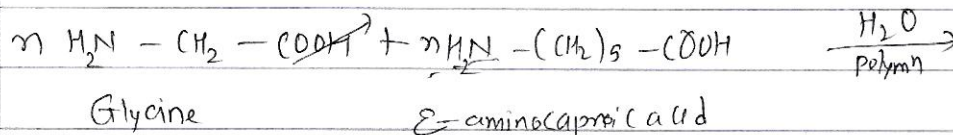 n H₂N – CH₂ – COOH + n H₂N – (CH₂)₅ – COOH H₂O polymn →
Glycine ε-aminocaproic acid